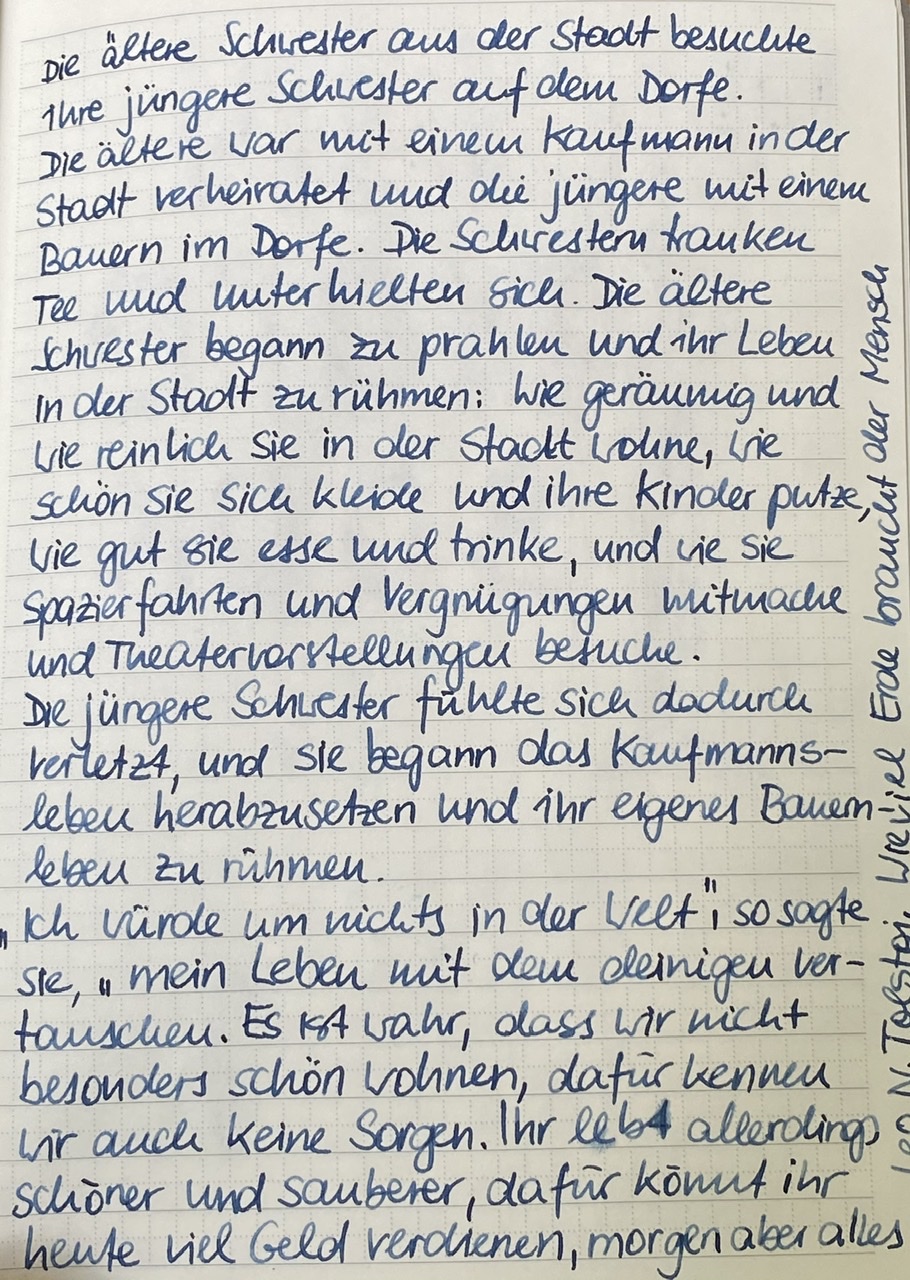 Die ältere Schwester aus der Stadt besuchte
ihre jüngere Schwester auf dem Dorfe.
Die ältere war mit einem Kaufmann in der
Stadt verheiratet und die jüngere mit einem
Bauern im Dorfe. Die Schwestern tranken
Tee und unterhielten sich. Die ältere
Schwester begann zu prahlen und ihr Leben
in der Stadt zu rühmen: wie geräumig und
wie reinlich sie in der Stadt wohne, wie
schön sie sich kleide und ihre Kinder putze,
wie gut sie esse und trinke, und wie sie
Spazierfahrten und Vergnügungen mitmache
und Theatervorstellungen besuche.
Die jüngere Schwester fühlte sich dadurch
verletzt, und sie begann das Kaufmanns-
leben herabzusetzen und ihr eigenes Bauern-
leben zu rühmen.
„Ich würde um nichts in der Welt", so sagte
sie, „mein Leben mit dem deinigen ver-
tauschen. Es ist wahr, dass wir nicht
besonders schön wohnen, dafür kennen
wir auch keine Sorgen. Ihr lebt allerdings
schöner und sauberer, dafür könnt ihr
heute viel Geld verdienen, morgen aber alles
Leo N. Tolstoi, Wieviel Erde braucht der Mensch